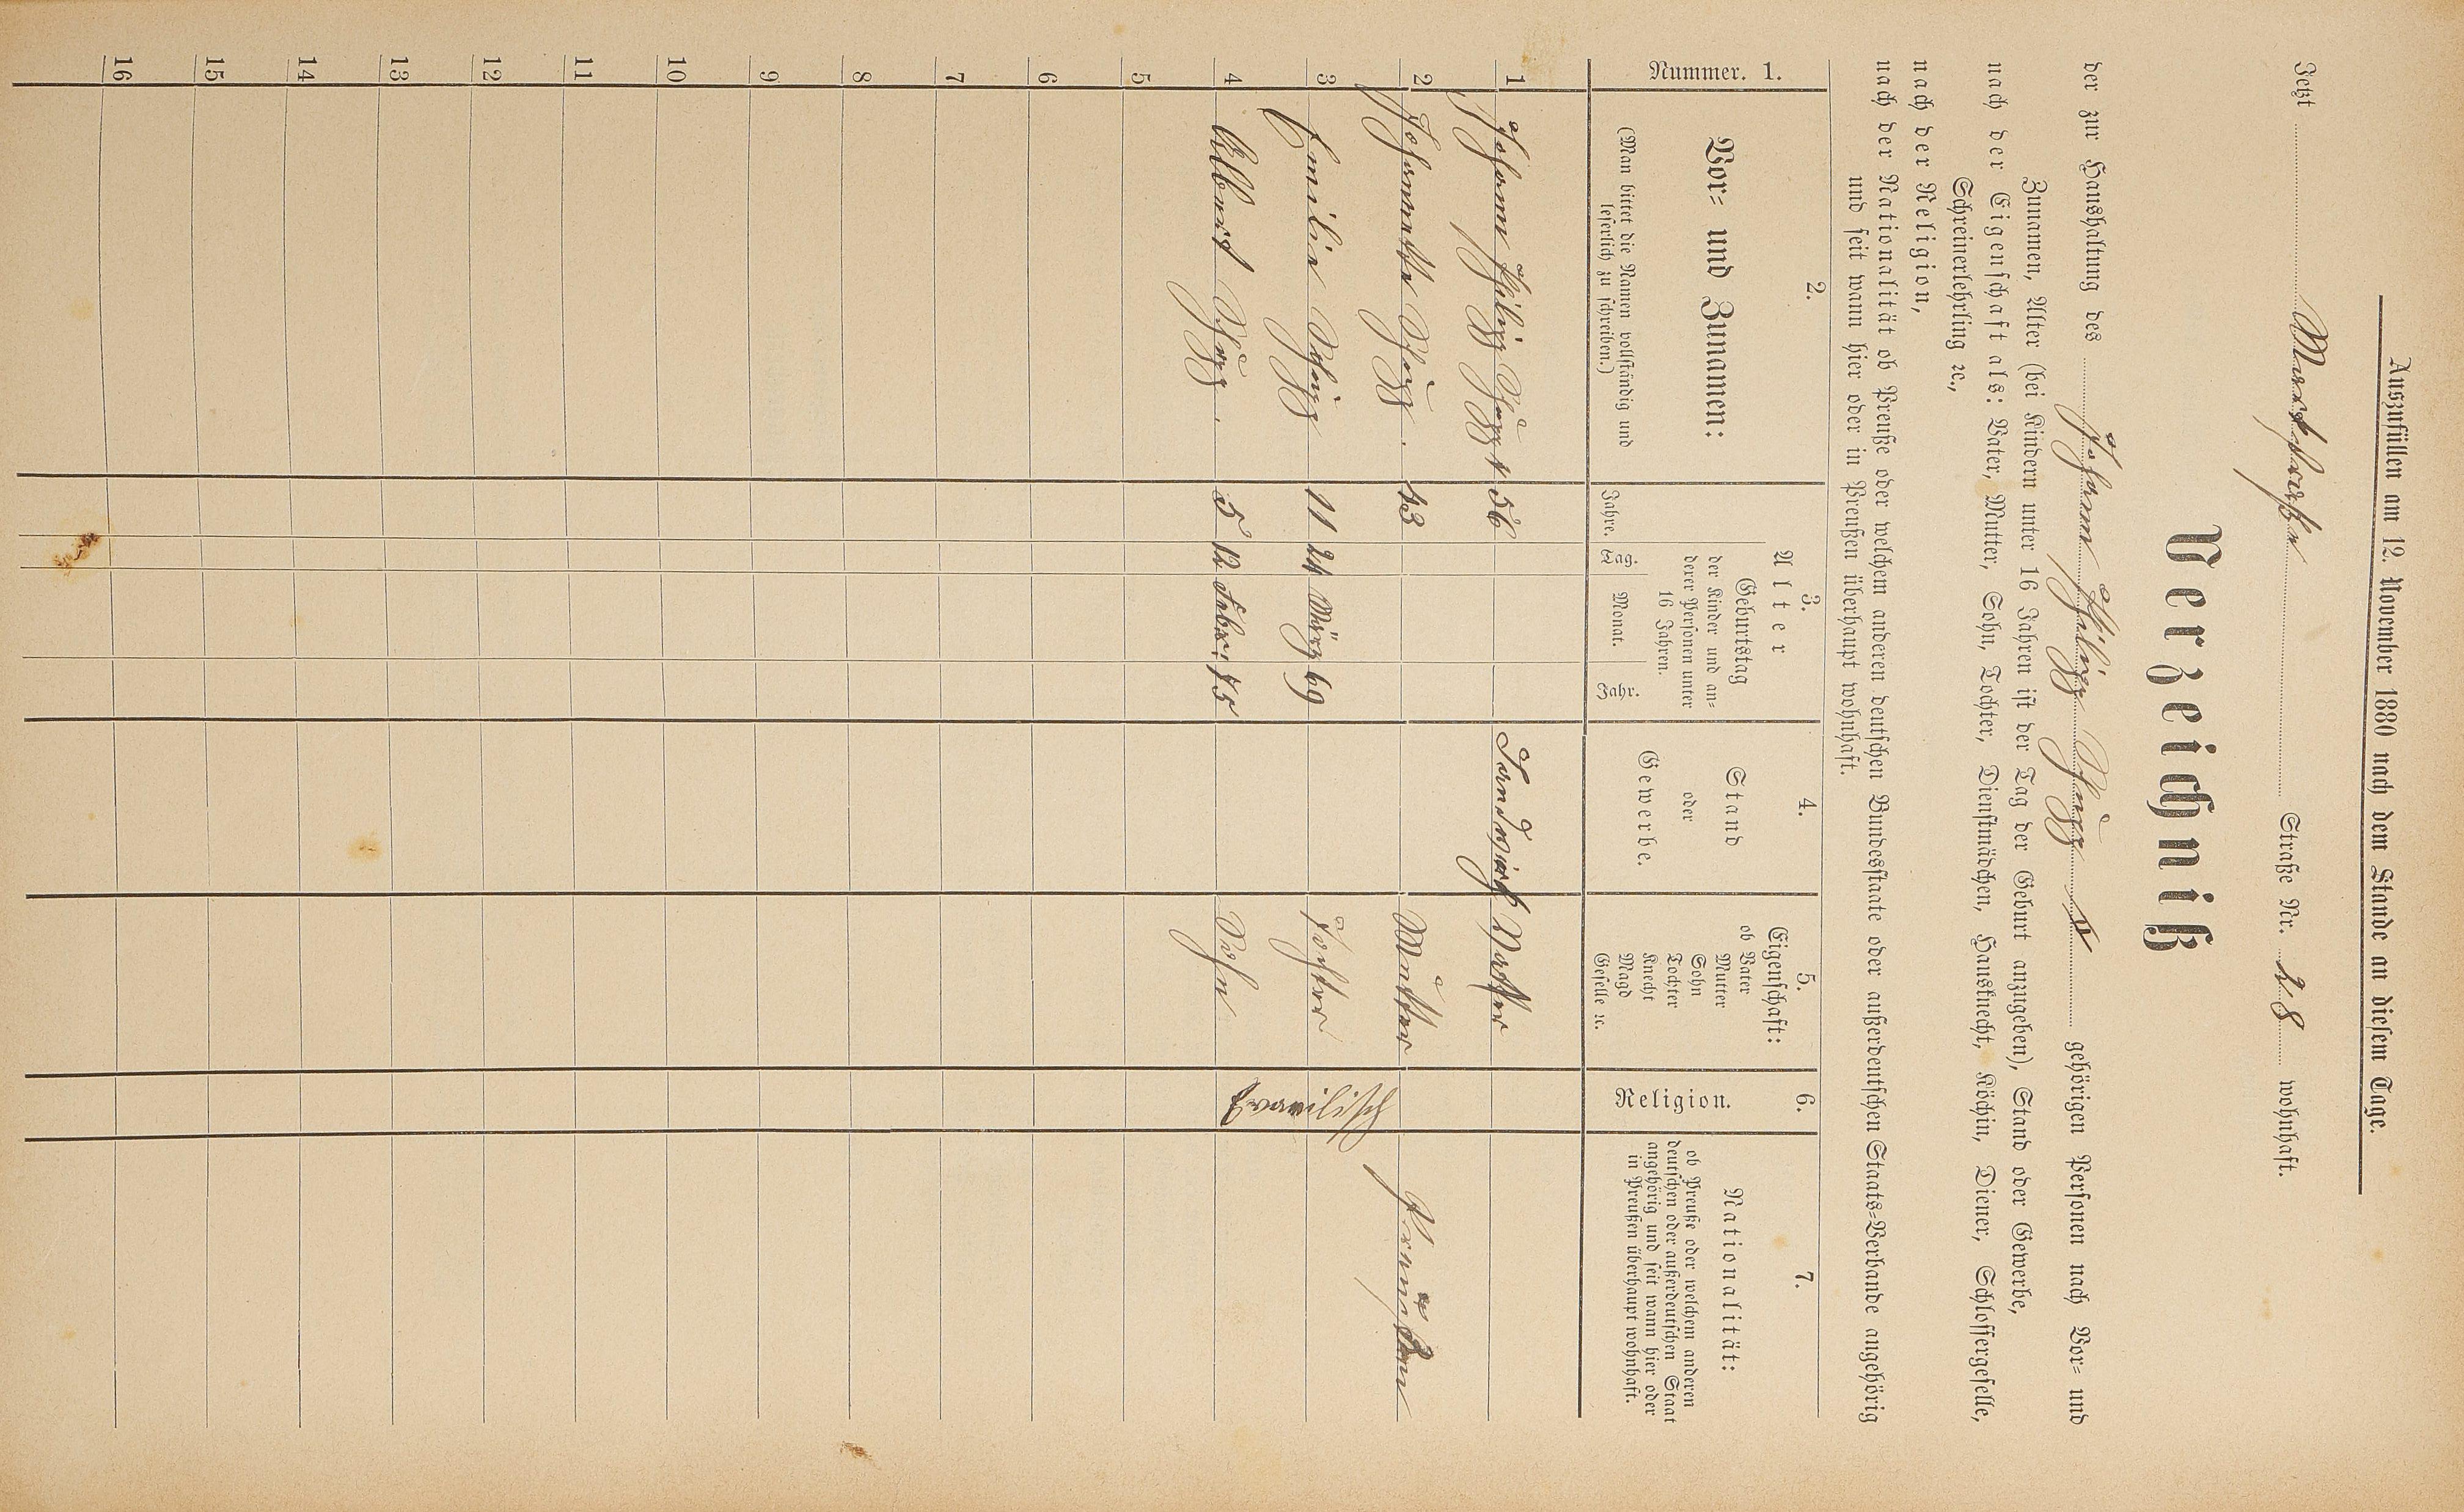 Auszufüllen am 12. November 1880 nach dem Stande an diesem Tage.
Jetzt Markstraße Straße Nr. 28 wohnhaft.
Verzeichniß
der zur Haushaltung des Johann Philipp gehörigen Personen nach Vor- und
Zunamen, Alter (bei Kindern unter 16 Jahren ist der Tag der Geburt anzugeben), Stand oder Gewerbe,
nach der Eigenschaft als: Vater, Mutter, Sohn, Tochter, Dienstmädchen, Hausknecht, Köchin, Diener, Schlossergeselle,
Schreinerlehrling ꝛc.,
nach der Religion,
nach der Nationalität ob Preuße oder welchem anderen deutschen Bundesstaate oder außerdeutschen Staats-Verbande angehörig
und seit wann hier oder in Preußen überhaupt wohnhaft.
Nummer. 1.
2.
Vor- und Zunamen:
(Man bittet die Namen vollständig und
leserlich zu schreiben.)
3.
Alter
Jahre.
Geburtstag
der Kinder und an-
derer Personen unter
16 Jahren.
Tag. Monat. Jahr.
4.
Stand
oder
Gewerbe.
5.
Eigenschaft:
ob Vater
Mutter
Sohn
Tochter
Knecht
Magd
Geselle ꝛc.
6.
Religion.
7.
Nationalität:
ob Preuße oder welchem anderen
deutschen oder außerdeutschen Staat
angehörig und seit wann hier oder
in Preußen überhaupt wohnhaft.
1 Johann Philipp 56 Landwirth Vatter
2 Johannette 43 Mutter Preußen
3 Emilie 11 24 März 69 Tochter
4 Albert 5 12 Febr. 75 Sohn
5
6
7
8
9
10
11
12
13
14
15
16